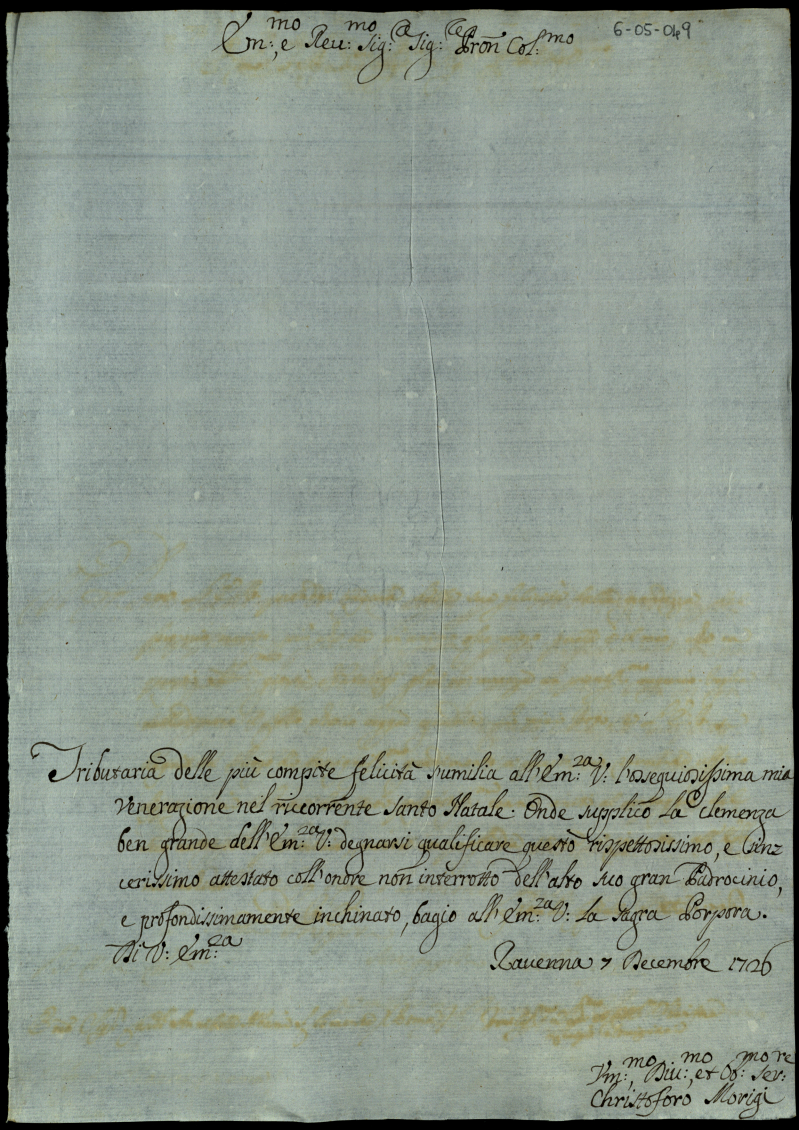 Em:mo, e Reu:mo Sig:re Sig:re Pron̄ Col:mo
6-05-049
Tributaria delle più compite felicità s'umilia all'Em:za V: l'osseguiosissima mia
Venerazione nel riccorrente Santo Natale: Onde supplico La Clemenza
ben grande dell'Em:za V: degnarsi qualificare questo rispettosissimo, e sinz
cerissimo attestato coll'onore non interrotto dell'alto suo gran Padrocinio,
e profondissimamente inchinato, bagio all'Em:za V: La Sagra Porpora.
Di V: Em:za
Rauenna 7 Decembre 1726
Vm:mo, Diu:mo, et Ob:mo Ser:re
Christoforo Morigi